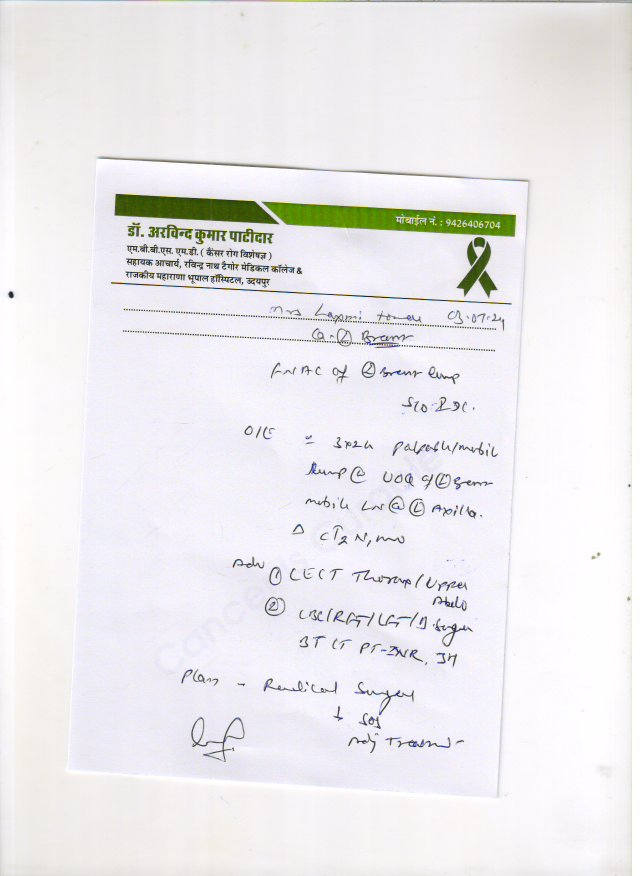 मोबाईल नं. : 9426406704
डॉ. अरविन्द कुमार पाटीदार
एम.बी.बी.एस. एम.डी. ( कैंसर रोग विशेषज्ञ )
सहायक आचार्य, रविन्द्र नाथ टैगोर मेडिकल कॉलेज &
राजकीय महाराणा भूपाल हॉस्पिटल, उदयपुर
Mrs Laxmi 03.07.24
Ca. (L) Breast
FNAC of (L) Breast lump
S/O IDC.
O/E = 3x2cm palpable/mobile
lump @ UOQ of (L) Breast
mobile LN @ (L) Axilla.
Δ cT2N1M0
Adv
① CECT Thorax/Upper
Abdo
② CBC/RFT/LFT/B.Sugar
BT CT PT-INR,
Plan - Radical Surgery
↓ SOS
Adj Treatment